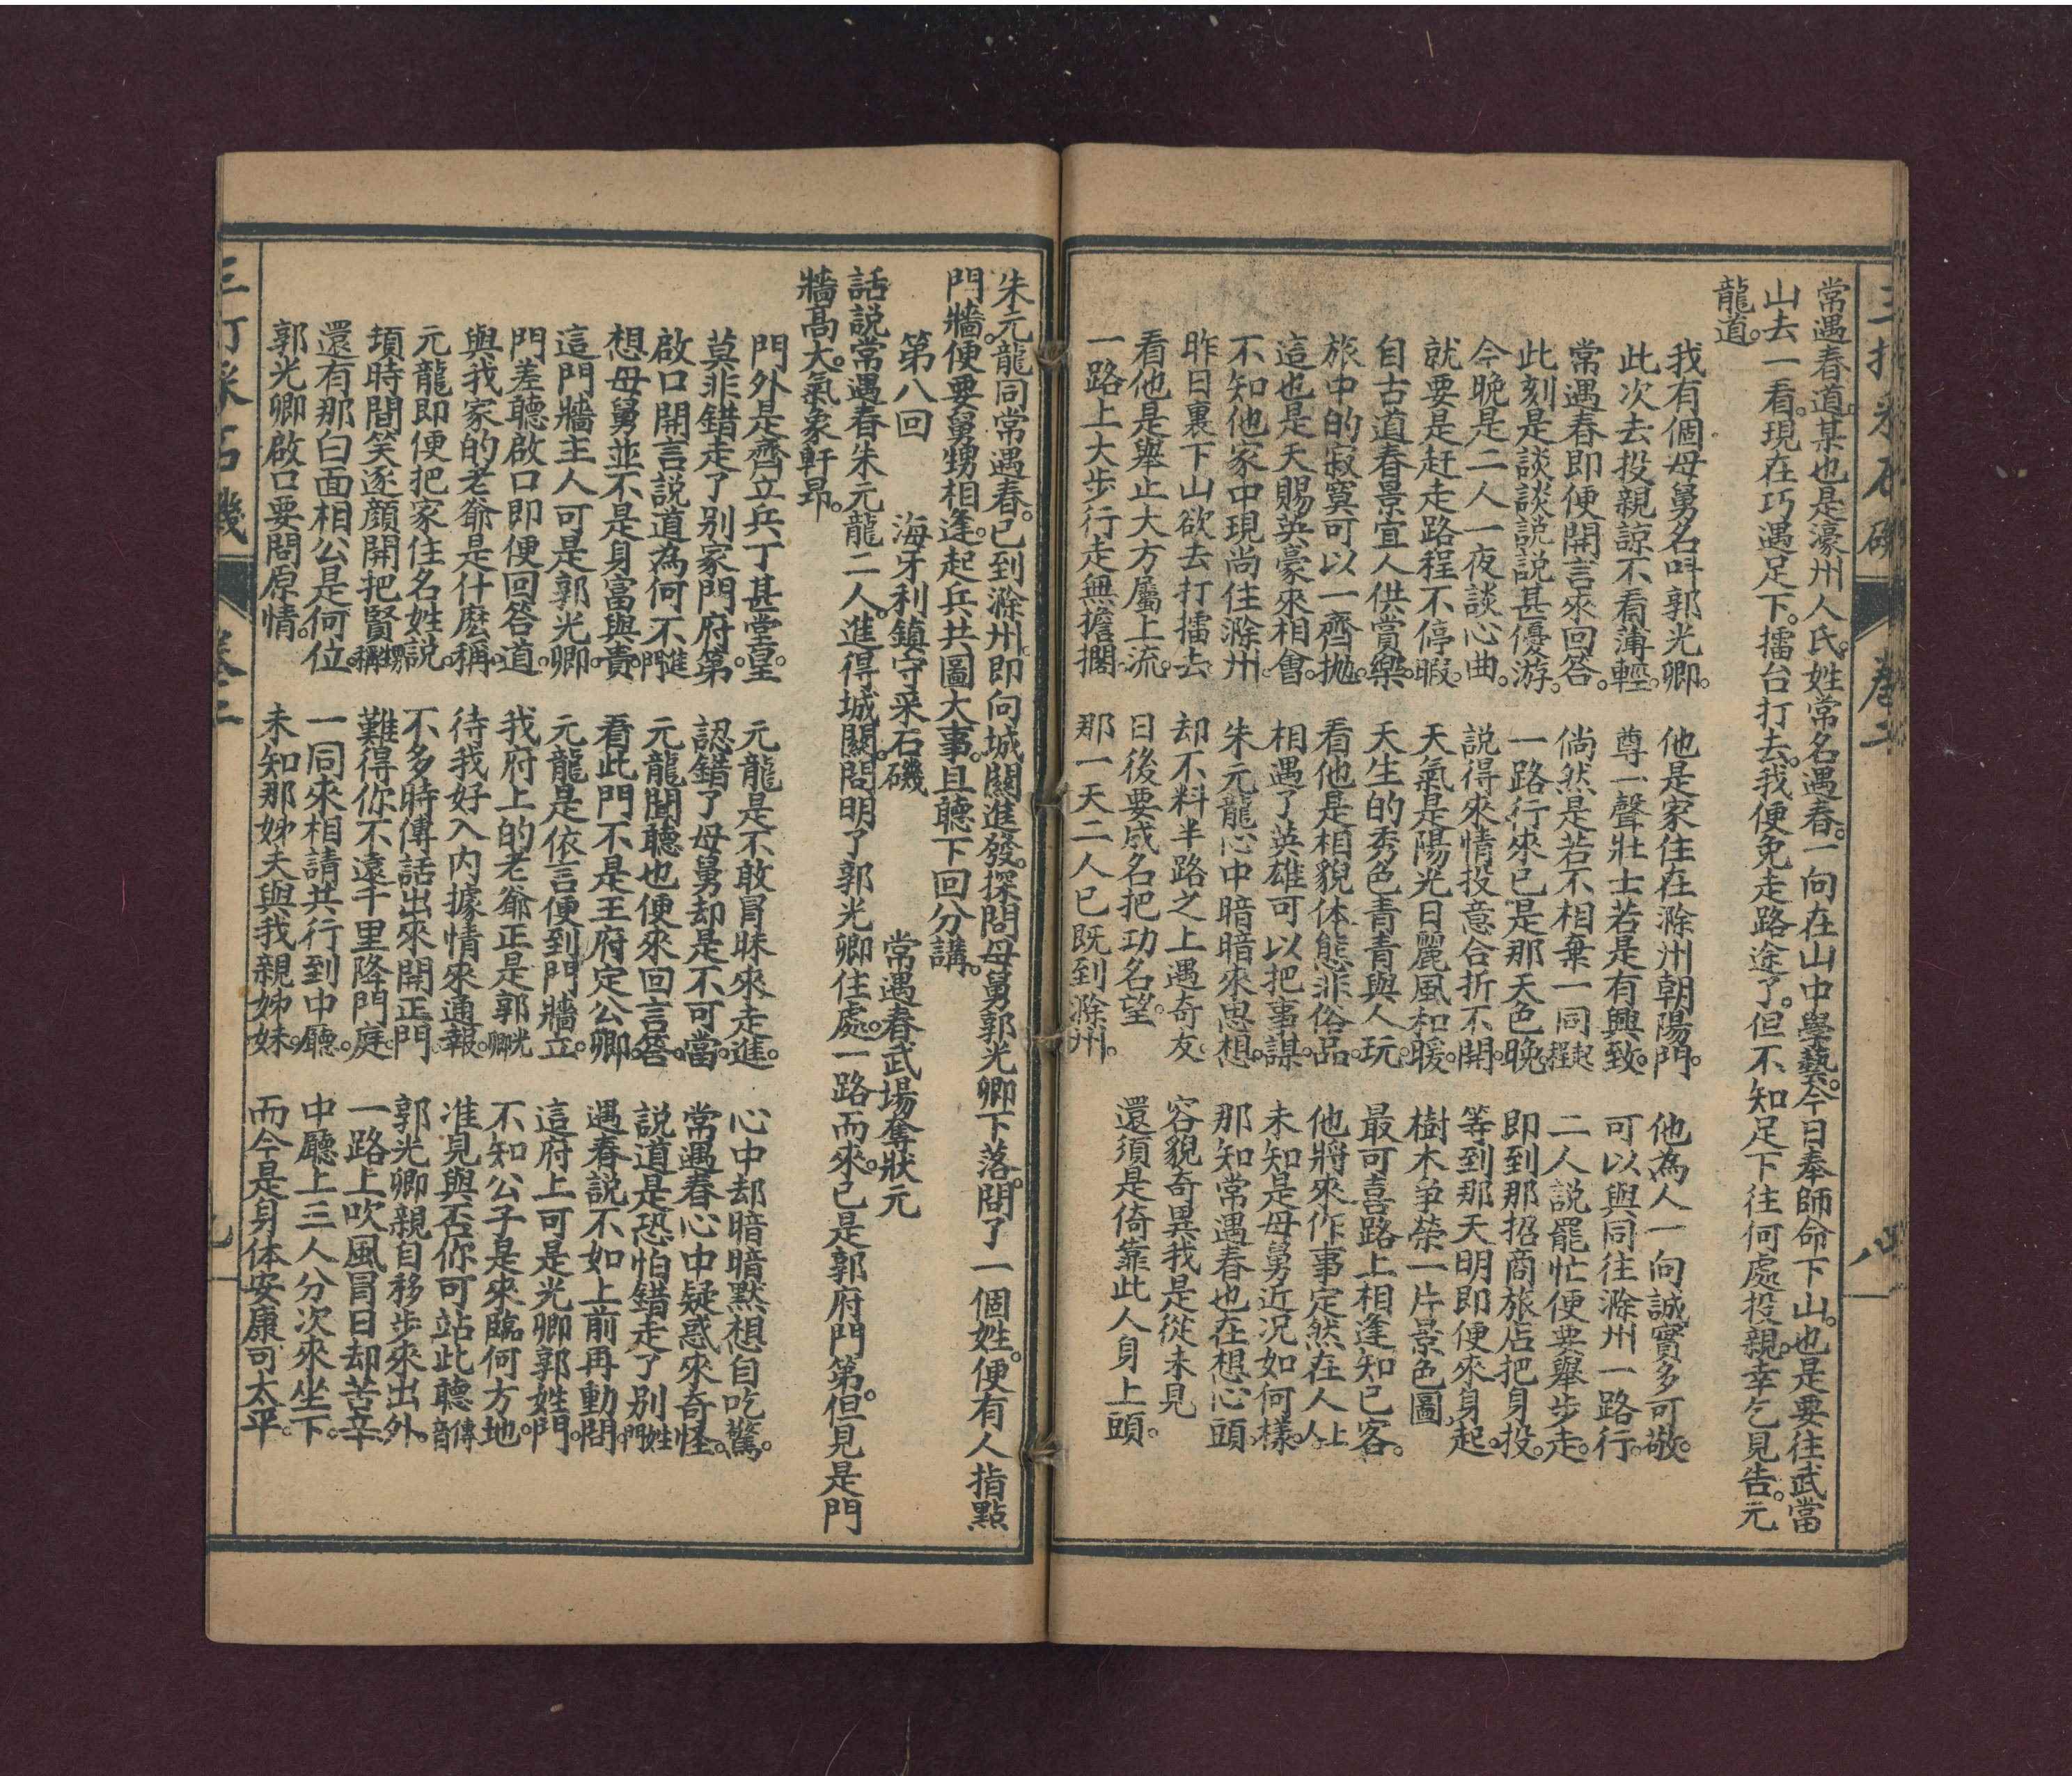 三打采石磯 卷二 八
常遇春道。某也是濠州人氏。姓常名遇春。一向在山中學藝。今日奉師命下山。也是要往武當
山去一看。現在巧遇足下。擂台打去。我便免走路途了。但不知足下往何處投親。幸乞見告。元
龍道。
我有個母舅名呌郭光卿。 他是家住在滁州朝陽門。 他為人一向誠實多可敬。
此次去投親諒不看薄輕。 尊一聲壯士若是有興致。 可以與同往滁州一路行。
常遇春即便開言來回答。 倘然是若不相棄一同起程 二人説罷忙便要舉步走。
此刻是談談説説甚優游。 一路行來已是那天色晚。 即到那招商旅店把身投。
今晚是二人一夜談心曲。 説得來情投意合折不開。 等到那天明即便來身起。
就要是赶走路程不停暇。 天氣是陽光日麗風和暖。 樹木争榮一片景色圖。
自古道春景宜人供賞樂。 天生的秀色青青與人玩。 最可喜路上相逢知已客。
旅中的寂寞可以一齊抛。 看他是相貌体態非俗品。 他將來作事定然在人人上
這也是天賜英豪來相會。 相遇了英雄可以把事謀。 未知是母舅近况如何樣。
不知他家中現尚住滁州。 朱元龍心中暗暗來思想。 那知常遇春也在想心頭。
昨日裏下山欲去打擂去 却不料半路之上遇奇友。 容貌奇異我是從未見
看他是舉止大方屬上流。 日後要成名把功名望。 還須是倚靠此人身上頭。
一路上大步行走無擔擱 那一天二人已既到滁州。
朱元龍同常遇春。已到滁州。即向城關進發。探問母舅郭光卿下落。問了一個姓。便有人指點
門牆。便要舅甥相逢。起兵共圖大事。且聽下回分講。
第八回 海牙利鎮守采石磯 常遇春武場奪狀元
話説常遇春朱元龍二人。進得城關。問明了郭光卿住處。一路而來。已是郭府門第。但見是門
牆高大。氣象軒昂。
門外是齊立兵丁甚堂皇。 元龍是不敢冒昧來走進。 心中却暗暗默想自吃驚。
莫非錯走了别家門府第。 認錯了母舅却是不可當。 常遇春心中疑惑來奇怪。
啟口開言説道為何不進門 元龍聞聽也便來回言答。 説道是恐怕錯走了别姓門
想母舅並不是身富與貴。 看此門不是王府定公卿。 遇春説不如上前再動問。
這門牆主人可是郭光卿。 元龍是依言便到門牆立。 這府上可是光卿郭姓門。
門差聽啟口即便回答道。 我府上的老爺正是郭光卿 不知公子是來臨何方地。
與我家的老爺是什麽稱。 待我好入内據情來通報。 准見與否你可站此聽傳音
元龍即便把家住名姓説。 不多時傳話出來開正門。 郭光卿親自移步來出外。
頃時間笑逐顔開把賢甥稱 難得你不遠千里降門庭。 一路上吹風冒日却苦辛。
還有那白面相公是何位。 一同來相請共行到中廳。 中廳上三人分次來坐下。
郭光卿啟口要問原情。 未知那姊夫與我親姊妹。 而今是身体安康可太平。
三打采石磯 卷二 九